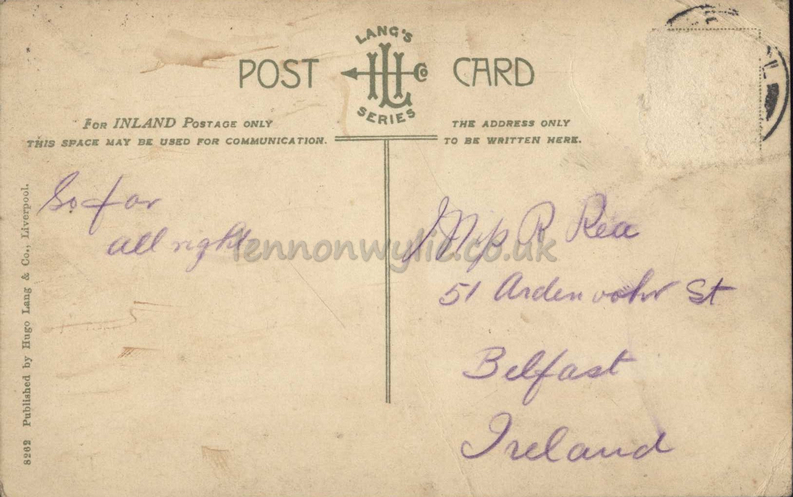 LANG'S
POST CARD
LH Co
SERIES
FOR INLAND POSTAGE ONLY
THIS SPACE MAY BE USED FOR COMMUNICATION.
THE ADDRESS ONLY
TO BE WRITTEN HERE.
So far
all right
R Rea
51 Ardenvohr St
Belfast
Ireland
lennonwylie.co.uk
8262 Published by Hugo Lang & Co., Liverpool.